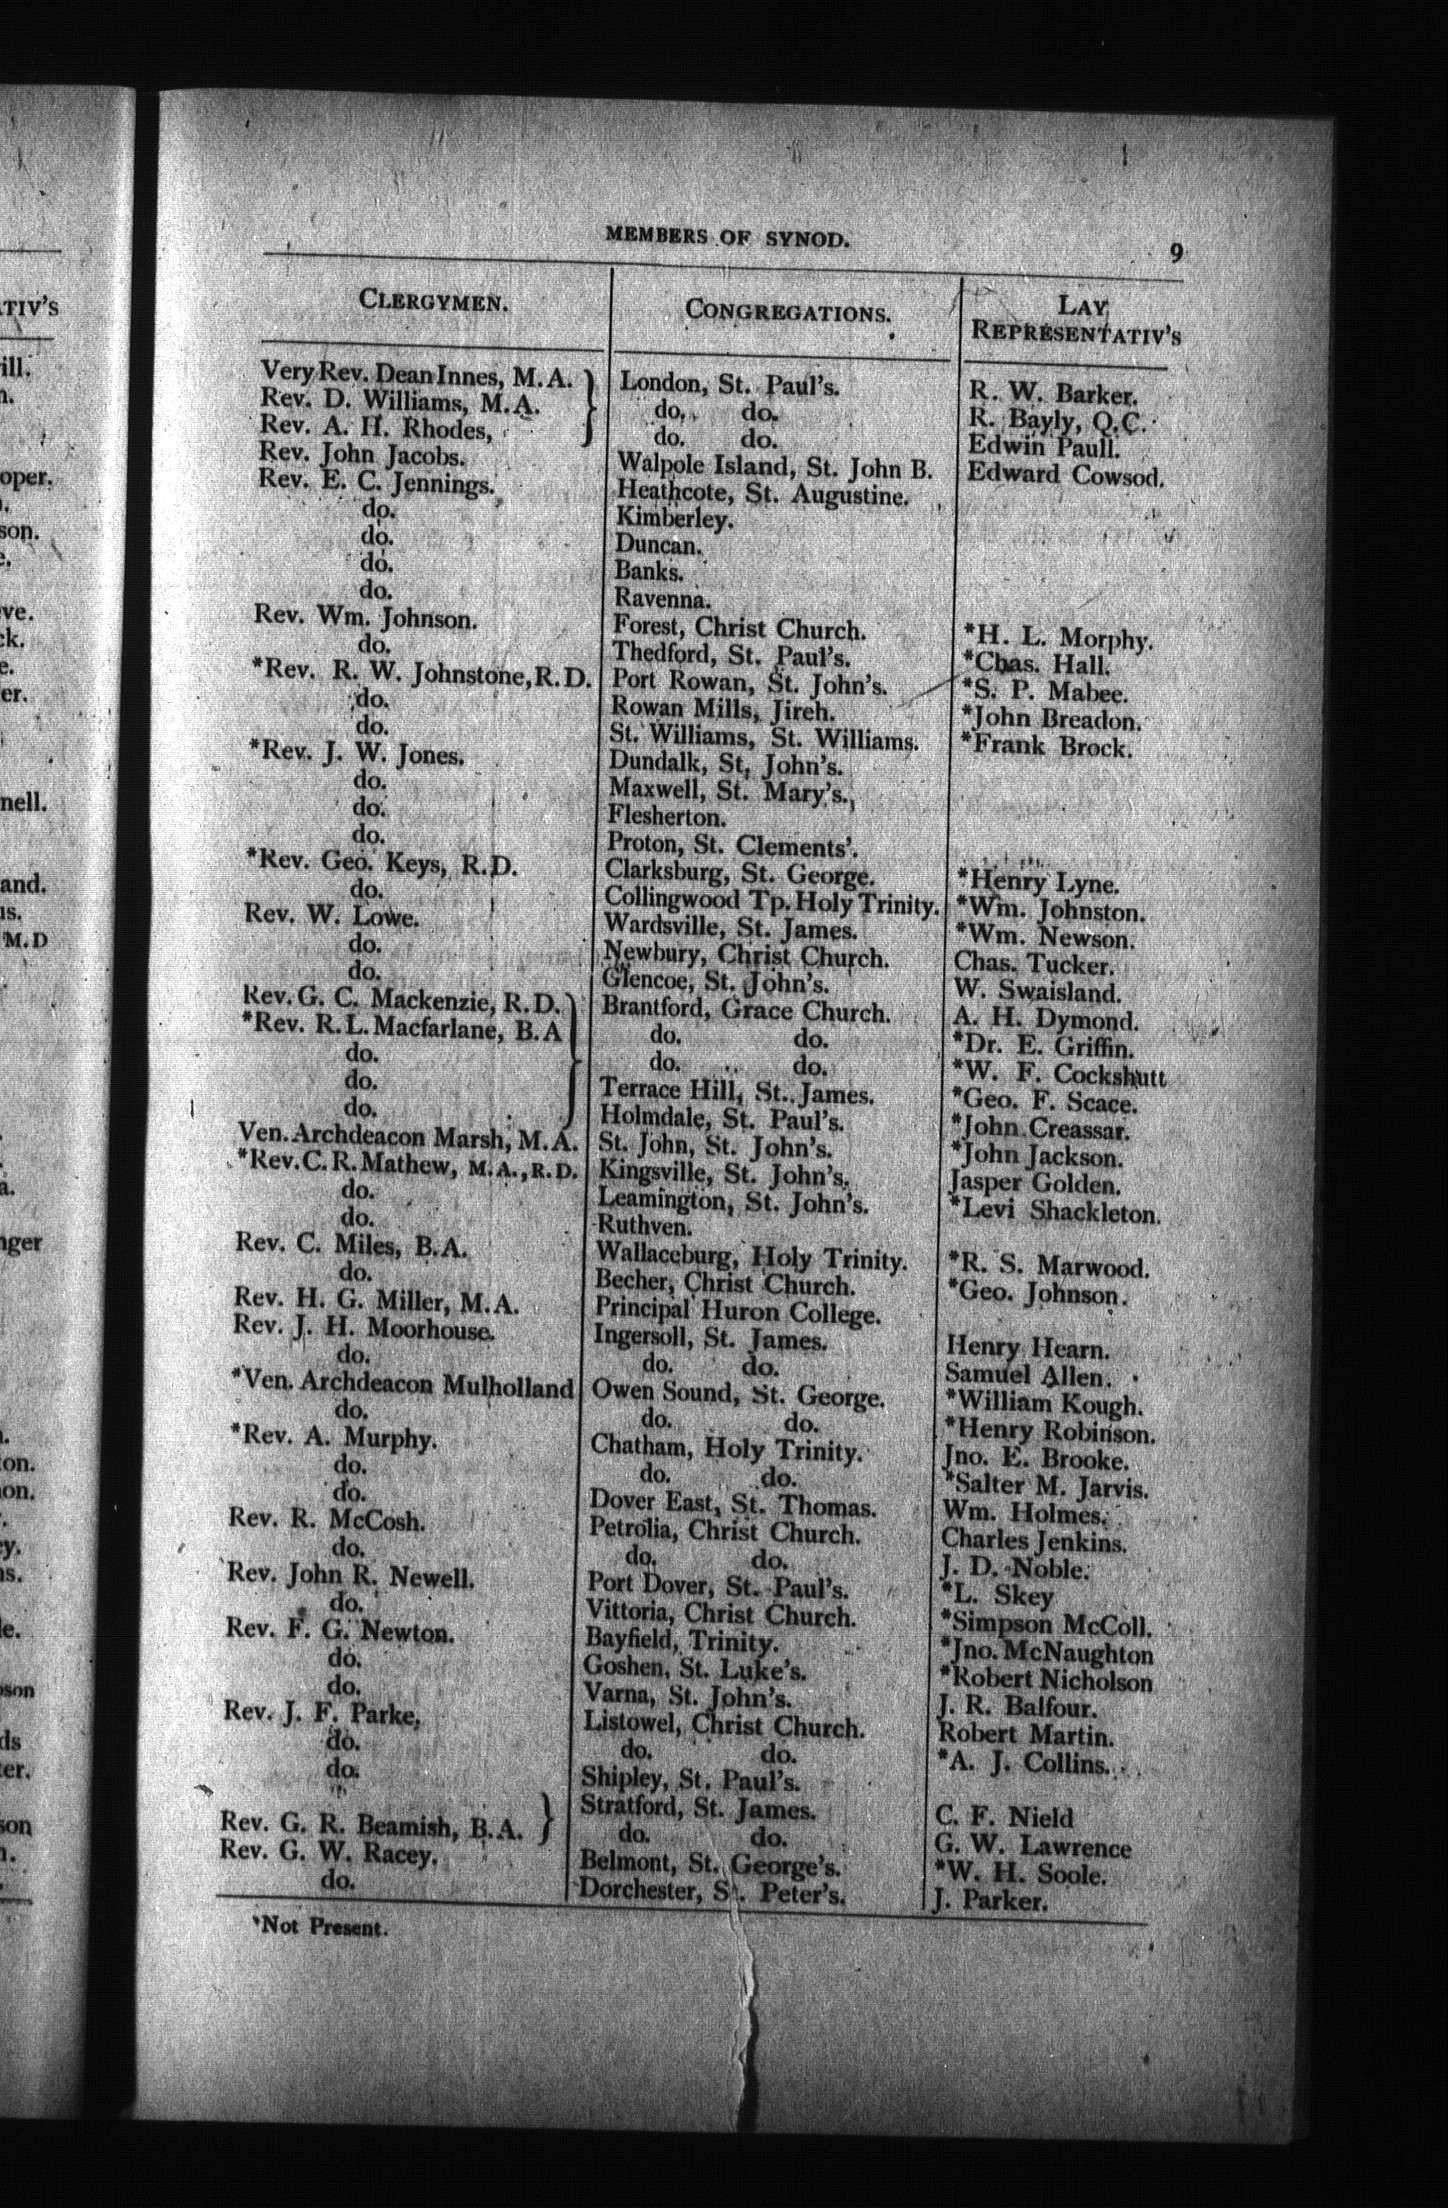 MEMBERS OF SYNOD. 9
CLERGYMEN. CONGREGATIONS. LAY REPRESENTATIV'S
Very Rev. Dean Innes, M.A. } London, St. Paul's. R. W. Barker.
Rev. D. Williams, M.A. } do. do. R. Bayly, Q.C.
Rev. A. H. Rhodes, } do. do. Edwin Paull.
Rev. John Jacobs. Walpole Island, St. John B. Edward Cowsod.
Rev. E. C. Jennings. Heathcote, St. Augustine.
do. Kimberley.
do. Duncan.
do. Banks.
do. Ravenna.
Rev. Wm. Johnson. Forest, Christ Church. *H. L. Morphy.
do. Thedford, St. Paul's. *Chas. Hall.
*Rev. R. W. Johnstone, R.D. Port Rowan, St. John's. *S. P. Mabee.
do. Rowan Mills, Jireh. *John Breadon.
do. St. Williams, St. Williams. *Frank Brock.
*Rev. J. W. Jones. Dundalk, St, John's.
do. Maxwell, St. Mary's.
do. Flesherton.
do. Proton, St. Clements'.
*Rev. Geo. Keys, R.D. Clarksburg, St. George. *Henry Lyne.
do. Collingwood Tp. Holy Trinity. *Wm. Johnston.
Rev. W. Lowe. Wardsville, St. James. *Wm. Newson.
do. Newbury, Christ Church. Chas. Tucker.
do. Glencoe, St. John's. W. Swaisland.
Rev. G. C. Mackenzie, R.D. } Brantford, Grace Church. A. H. Dymond.
*Rev. R. L. Macfarlane, B.A } do. do. *Dr. E. Griffin.
do. } do. do. *W. F. Cockshutt
do. } Terrace Hill, St. James. *Geo. F. Scace.
do. } Holmdale, St. Paul's. *John Creassar.
Ven. Archdeacon Marsh, M.A. St. John, St. John's. *John Jackson.
*Rev. C. R. Mathew, M.A., R.D. Kingsville, St. John's. Jasper Golden.
do. Leamington, St. John's. *Levi Shackleton.
do. Ruthven.
Rev. C. Miles, B.A. Wallaceburg, Holy Trinity. *R. S. Marwood.
do. Becher, Christ Church. *Geo. Johnson.
Rev. H. G. Miller, M.A. Principal Huron College.
Rev. J. H. Moorhouse. Ingersoll, St. James. Henry Hearn.
do. do. do. Samuel Allen.
*Ven. Archdeacon Mulholland Owen Sound, St. George. *William Kough.
do. do. do. *Henry Robinson.
*Rev. A. Murphy. Chatham, Holy Trinity. Jno. E. Brooke.
do. do. do. *Salter M. Jarvis.
do. Dover East, St. Thomas. Wm. Holmes.
Rev. R. McCosh. Petrolia, Christ Church. Charles Jenkins.
do. do. do. J. D. Noble.
Rev. John R. Newell. Port Dover, St. Paul's. *L. Skey
do. Vittoria, Christ Church. *Simpson McColl.
Rev. F. G. Newton. Bayfield, Trinity. *Jno. McNaughton
do. Goshen, St. Luke's. *Robert Nicholson
do. Varna, St. John's. J. R. Balfour.
Rev. J. F. Parke, Listowel, Christ Church. Robert Martin.
do. do. do. *A. J. Collins.
do. Shipley, St. Paul's.
} Stratford, St. James. C. F. Nield
Rev. G. R. Beamish, B.A. } do. do. G. W. Lawrence
Rev. G. W. Racey. Belmont, St. George's. *W. H. Soole.
do. Dorchester, St. Peter's. J. Parker.
*Not Present.